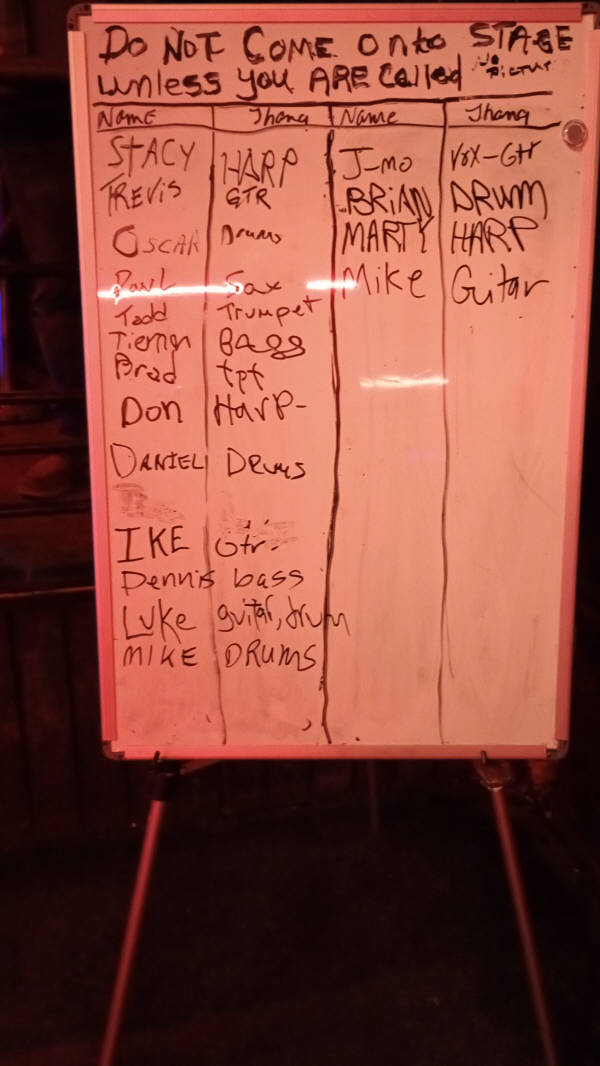 Do NOT COME Onto STAGE
unless you ARE Called NO PICTURE
Name Thang Name Thang
STACY HARP J-mo Vox-Gtr
TREVIS GTR BRIAN DRUM
OSCAR Drums MARTY HARP
Paul Sax Mike Guitar
Todd Trumpet
Tiernan Bass
Brad tpt
Don HarP-
DANIEL DRums
IKE Gtr-
Dennis bass
Luke guitar, drum
MIKE DRUMS